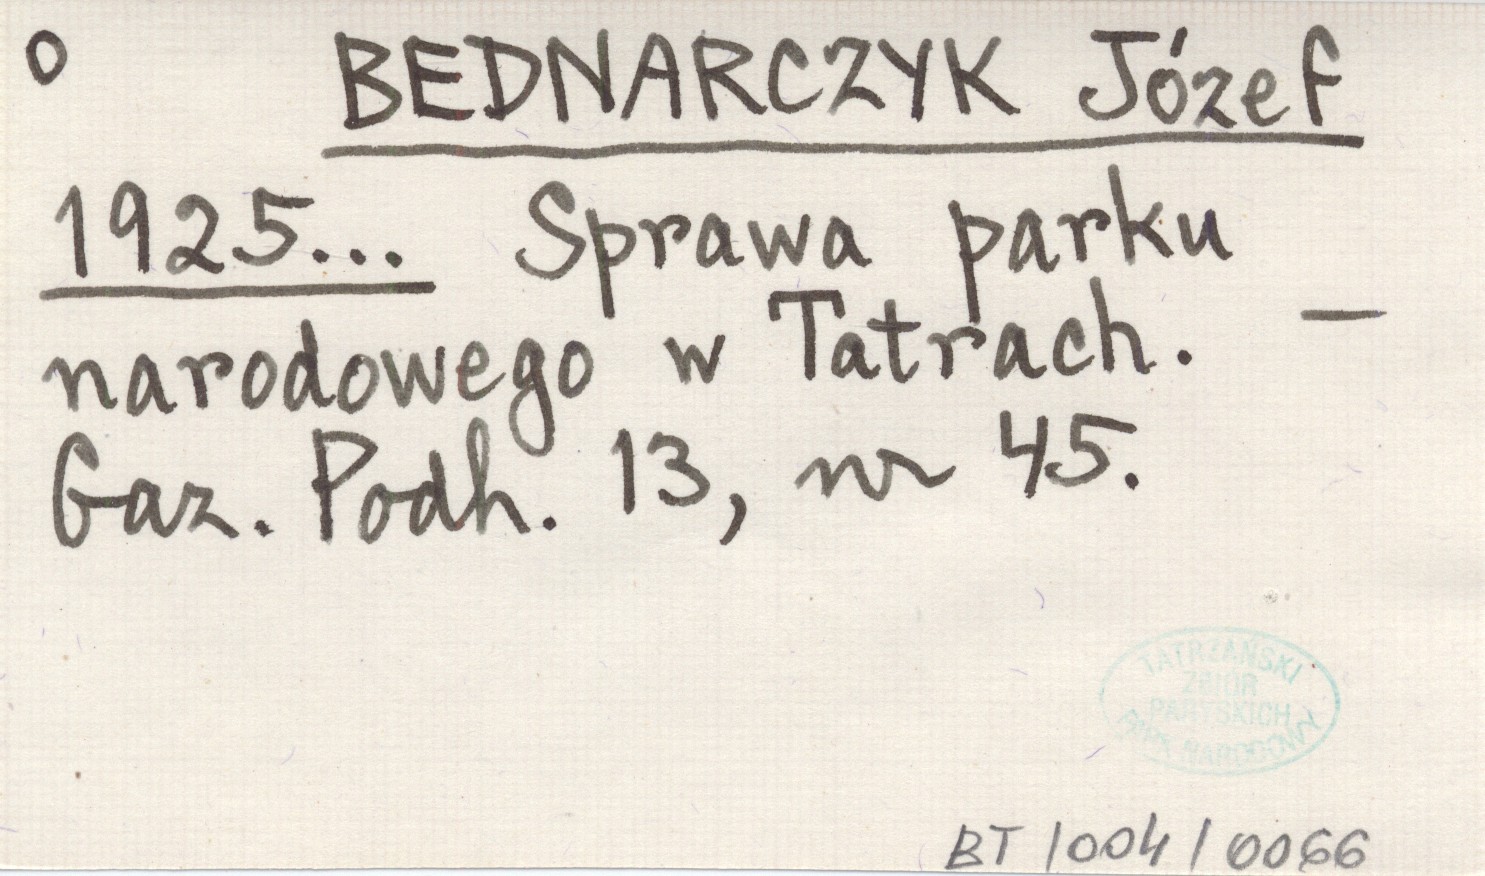 o BEDNARCZYK Józef
1925... Sprawa parku
narodowego w Tatrach. —
Gaz. Podh. 13, nr 45.
TATRZAŃSKI
ZBIÓR
PARYSKICH
PARK NARODOWY
BT /004/0066